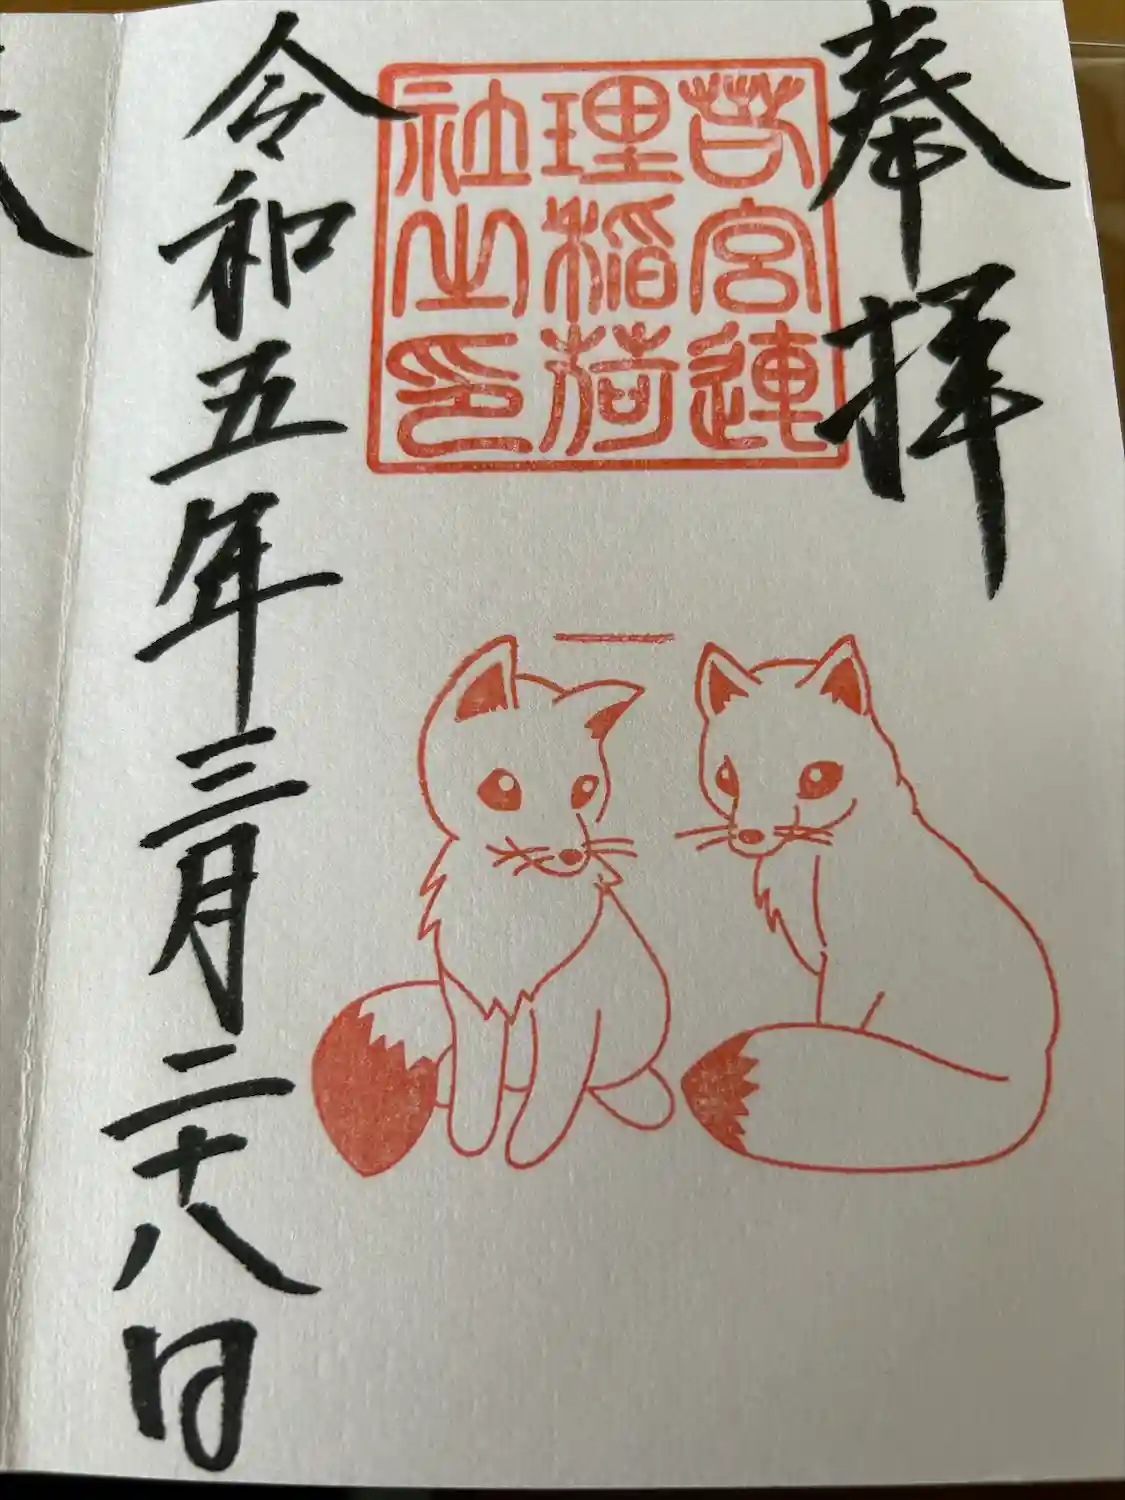 奉拝
若宮連
理稲荷
社之印
令和五年三月二十八日